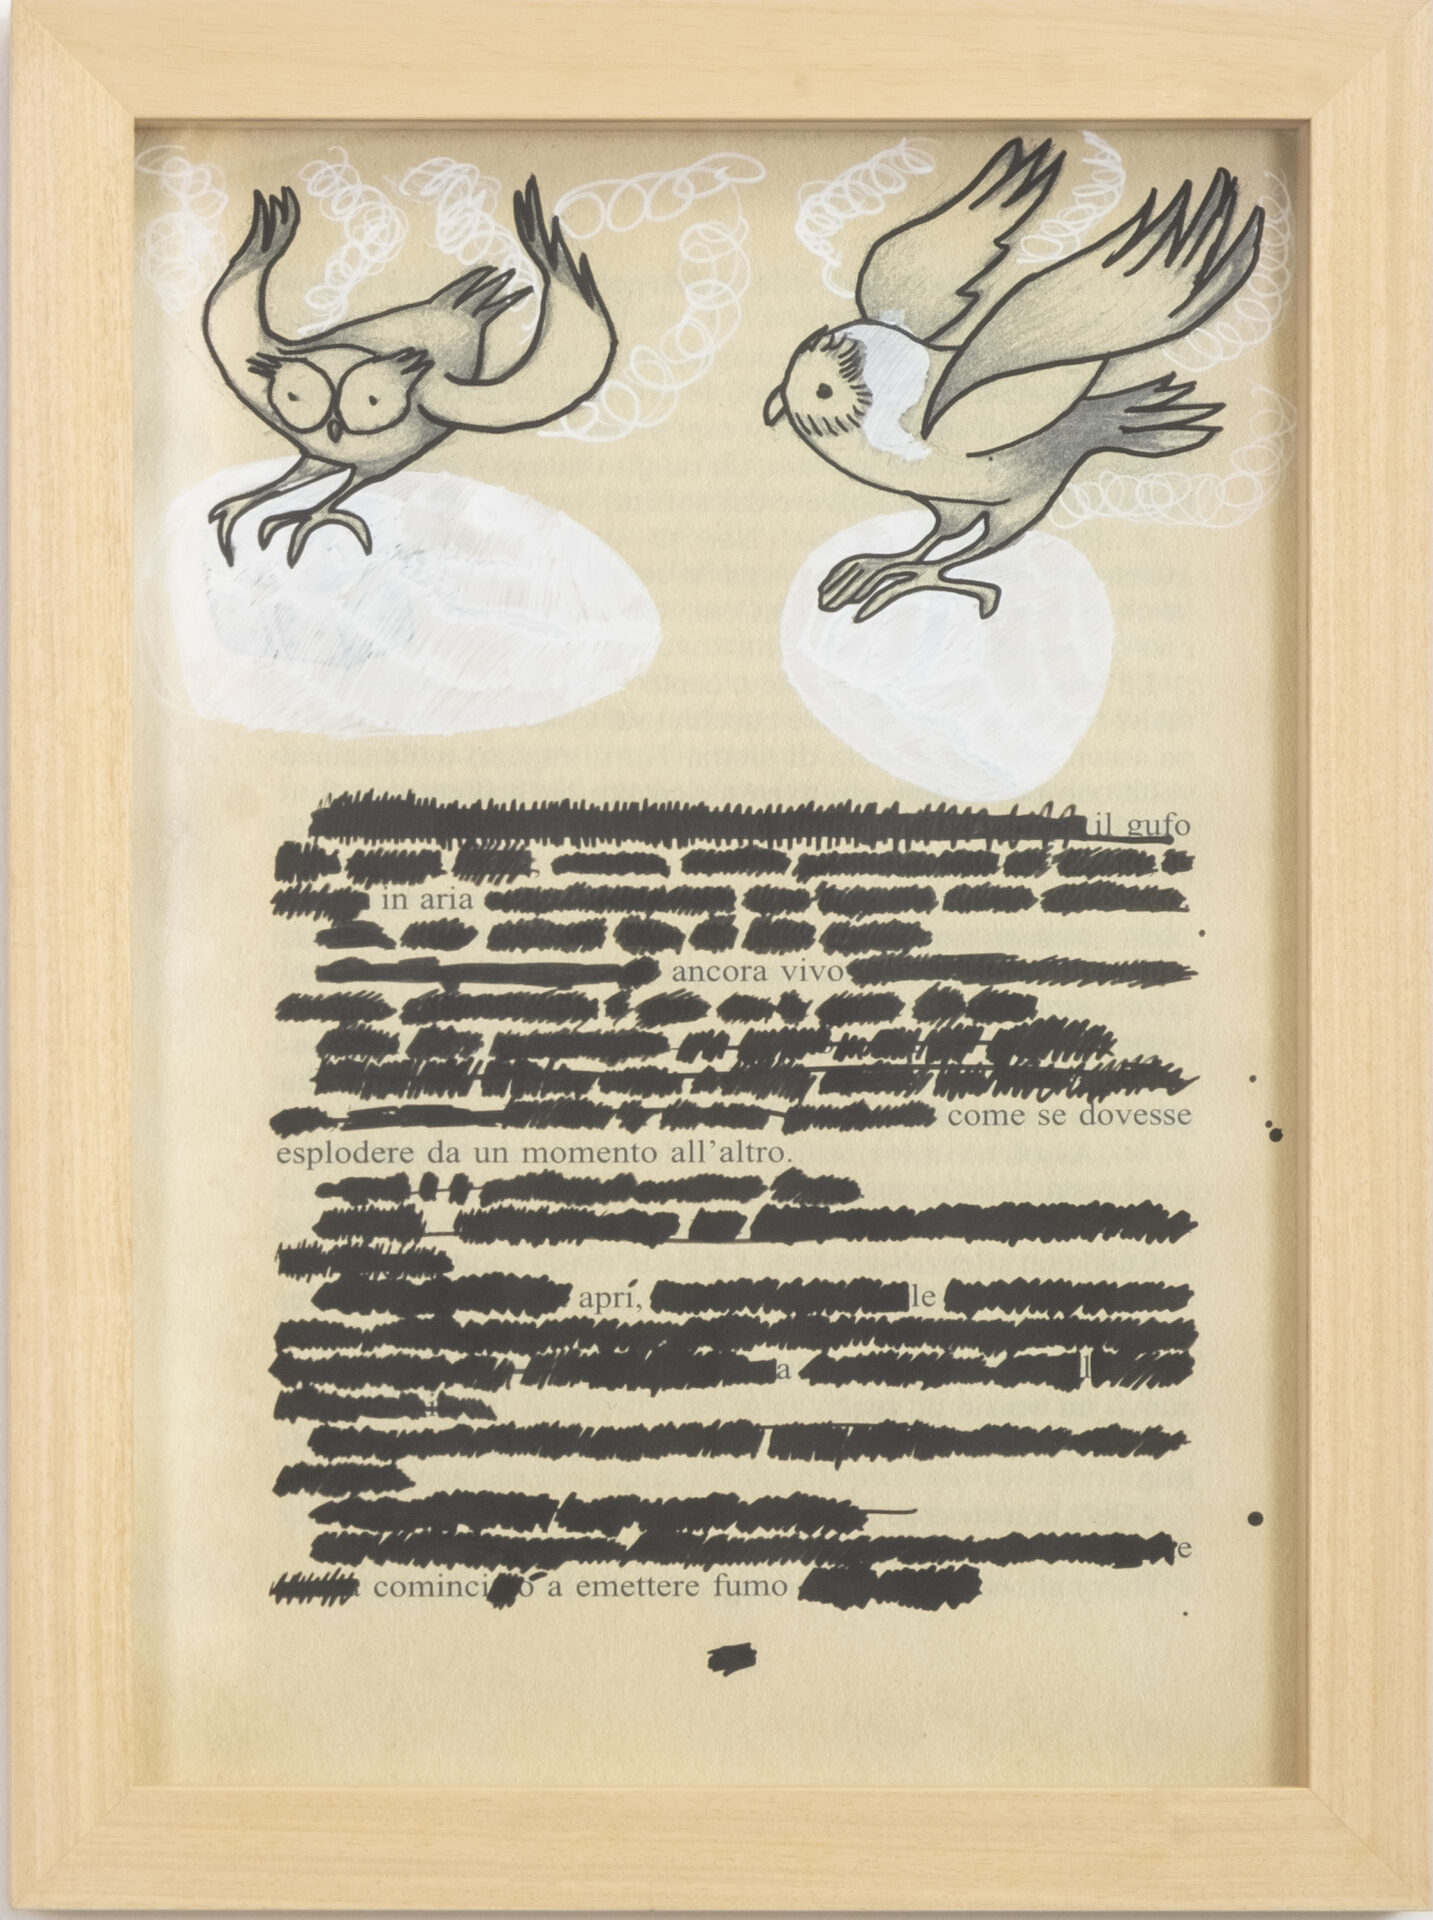 il gufo
in aria
ancora vivo
come se dovesse
esplodere da un momento all'altro.
aprí, le
a l
e
cominciò a emettere fumo